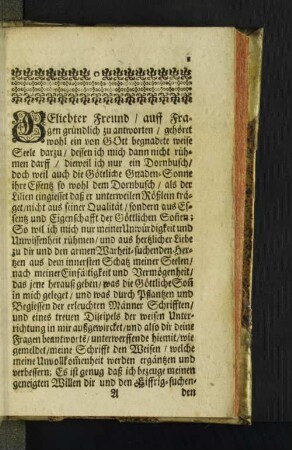 1
GEliebter Freund / auff Fra-
gen gründlich zu antworten / gehöret
wohl ein von GOtt begnadete weise
Seele darzu / dessen ich mich dann nicht rüh-
men darff / dieweil ich nur ein Dornbusch /
doch weil auch die Göttliche Gnaden-Sonne
ihre Essentz so wohl dem Dornbusch / als der
Lilien eingiesset daß er unterweilen Rößlein trä-
get / nicht aus seiner Qualität / sondern aus Es-
sentz und Eigenschafft der Göttlichen Soñen;
So wil ich mich nur meiner Unwürdigkeit und
Unwissenheit rühmen / und aus hertzlicher Liebe
zu dir und den armen Warheit-suchenden-Her-
tzen aus dem innersten Schatz meiner Seelen /
nach meiner Einfältigkeit und Vermögenheit /
das jene heraus geben / was die Göttliche Soñ
in mich geleget / und was durch Pflantzen und
Begiessen der erleuchten Männer Schrifften /
und eines treuen Discipels der weisen Unter-
richtung in mir auffgewircket / und also dir deine
Fragen beantworte / unterwerffende hiemit / wie
gemeldet / meine Schrifft den Weisen / welche
meine Unvollkom̃enheit werden ergäntzen und
verbessern. Es ist genug daß ich bezeuge meinen
geneigten Willen dir und den Eiffrig-suchen-
A den